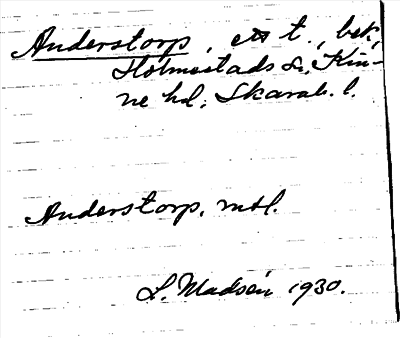 Anderstorp, ett t., bek,
Holmestads sn, Kin-
ne hd, Skarab. l.
Anderstorp, mtl.
L. Madsén 1930.